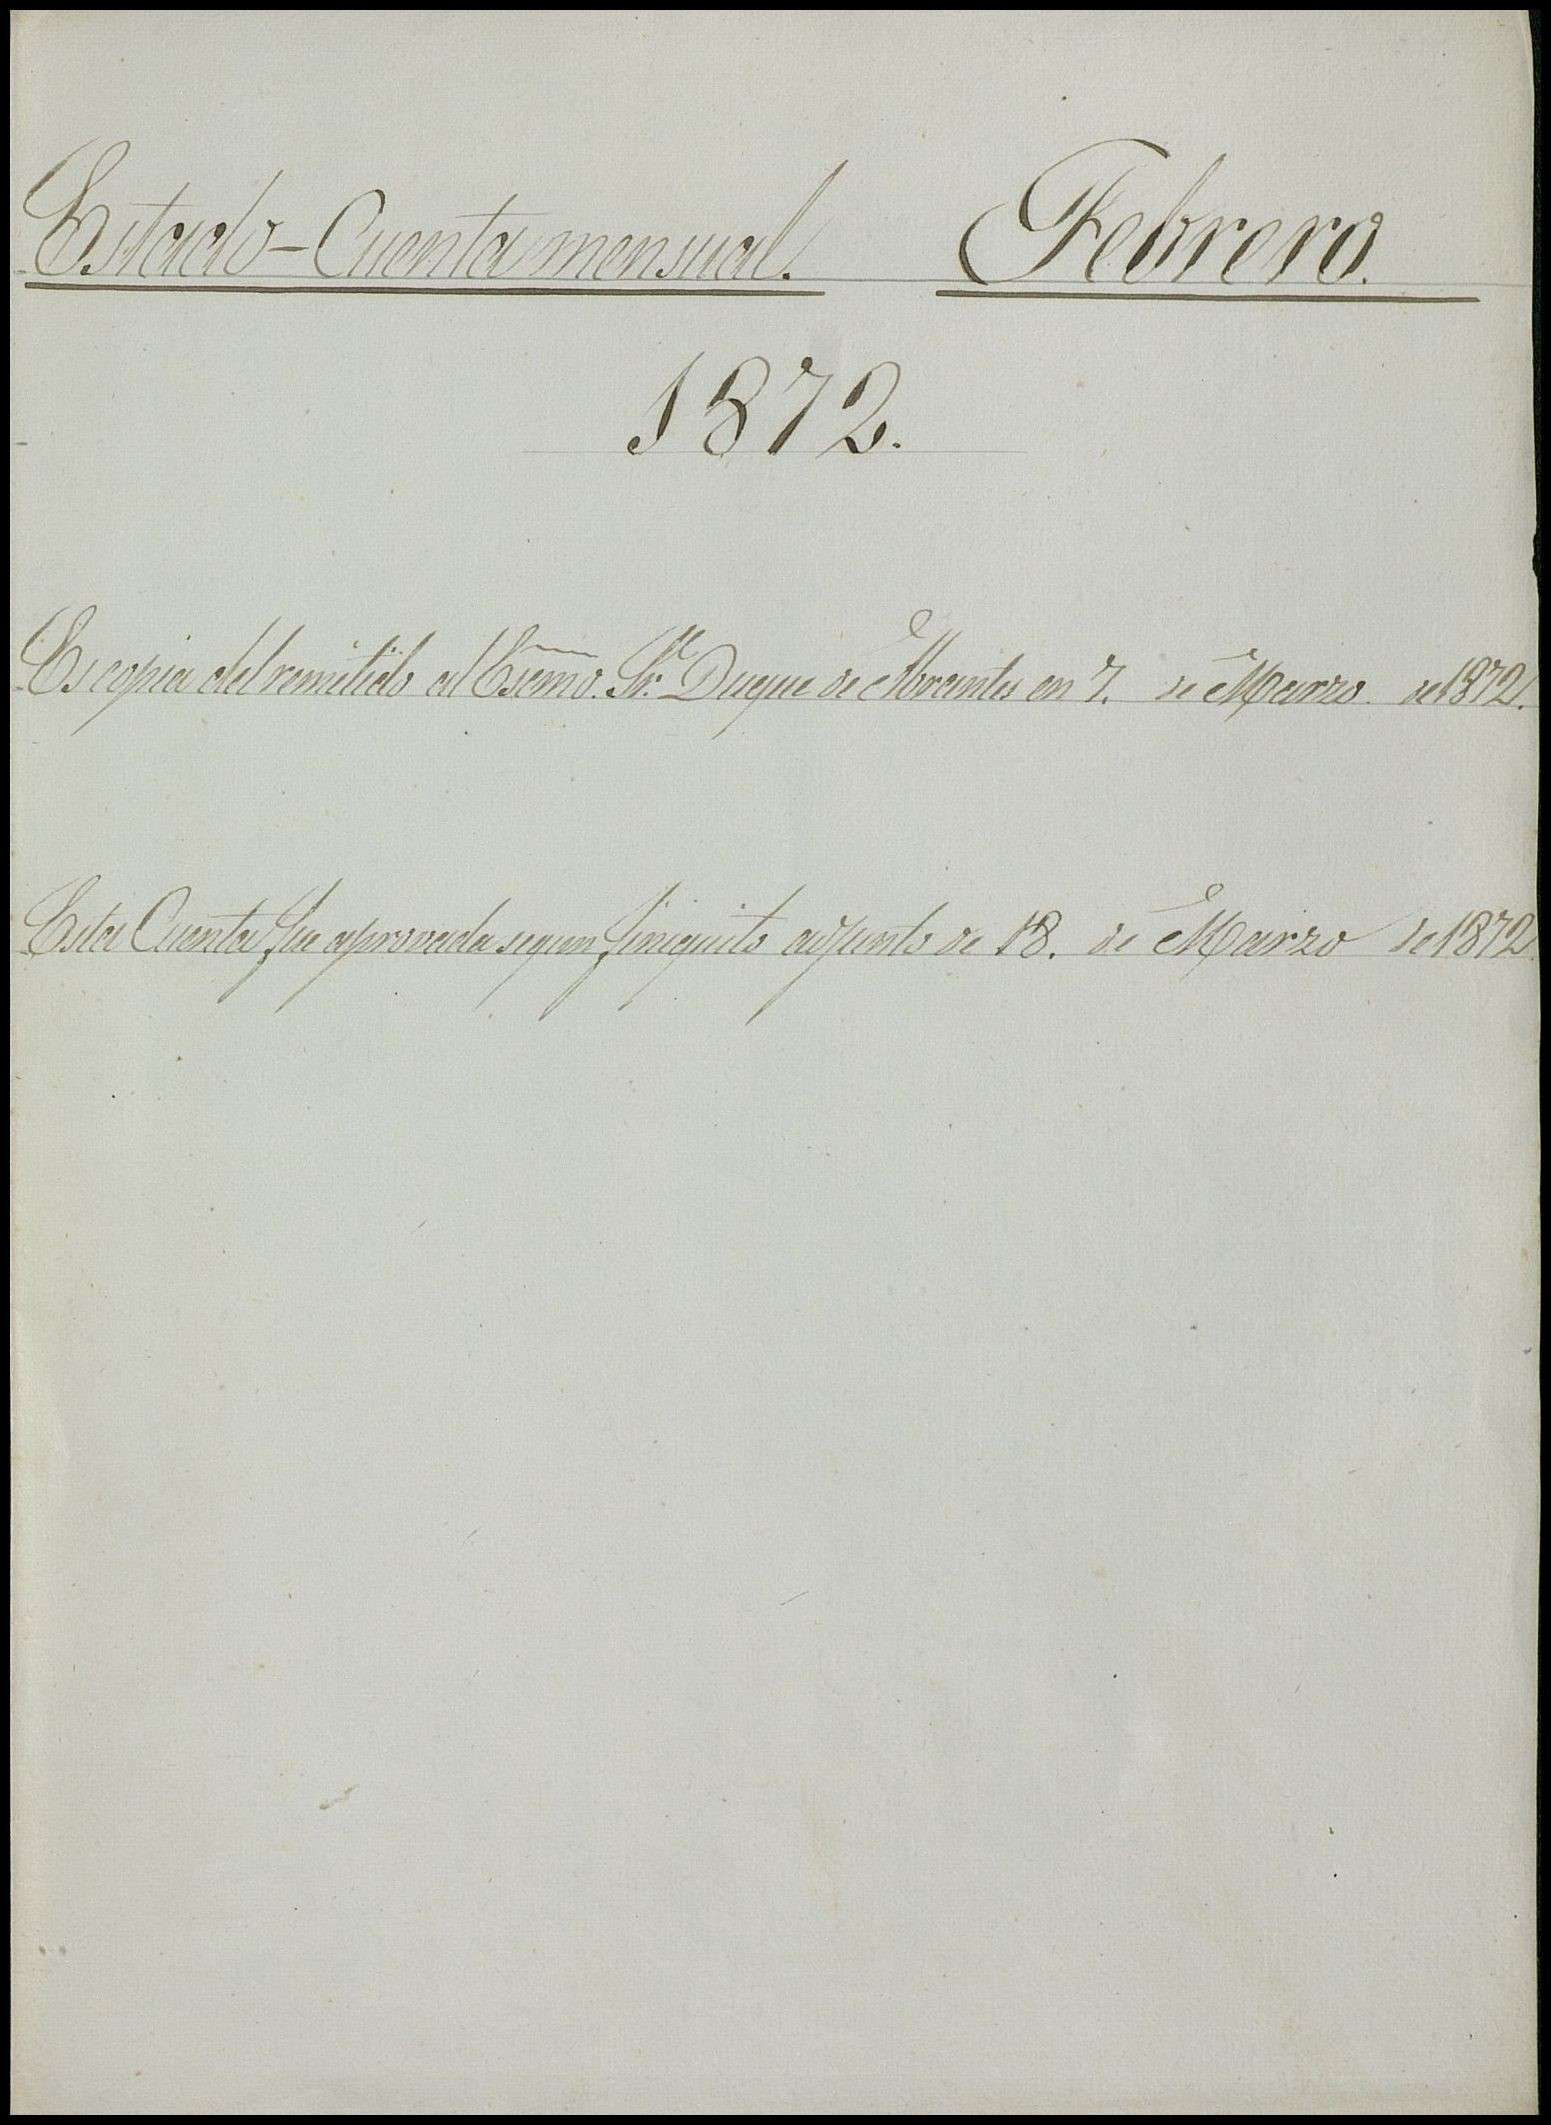 Estado-Cuenta mensual. Febrero.
1872.
Es copia del remitido al Escmo. Sr. Duque de Abrantes en 7. de Marzo. de 1872.
Esta Cuenta fue aprovada segun finiquito adjunto de 18. de Marzo de 1872